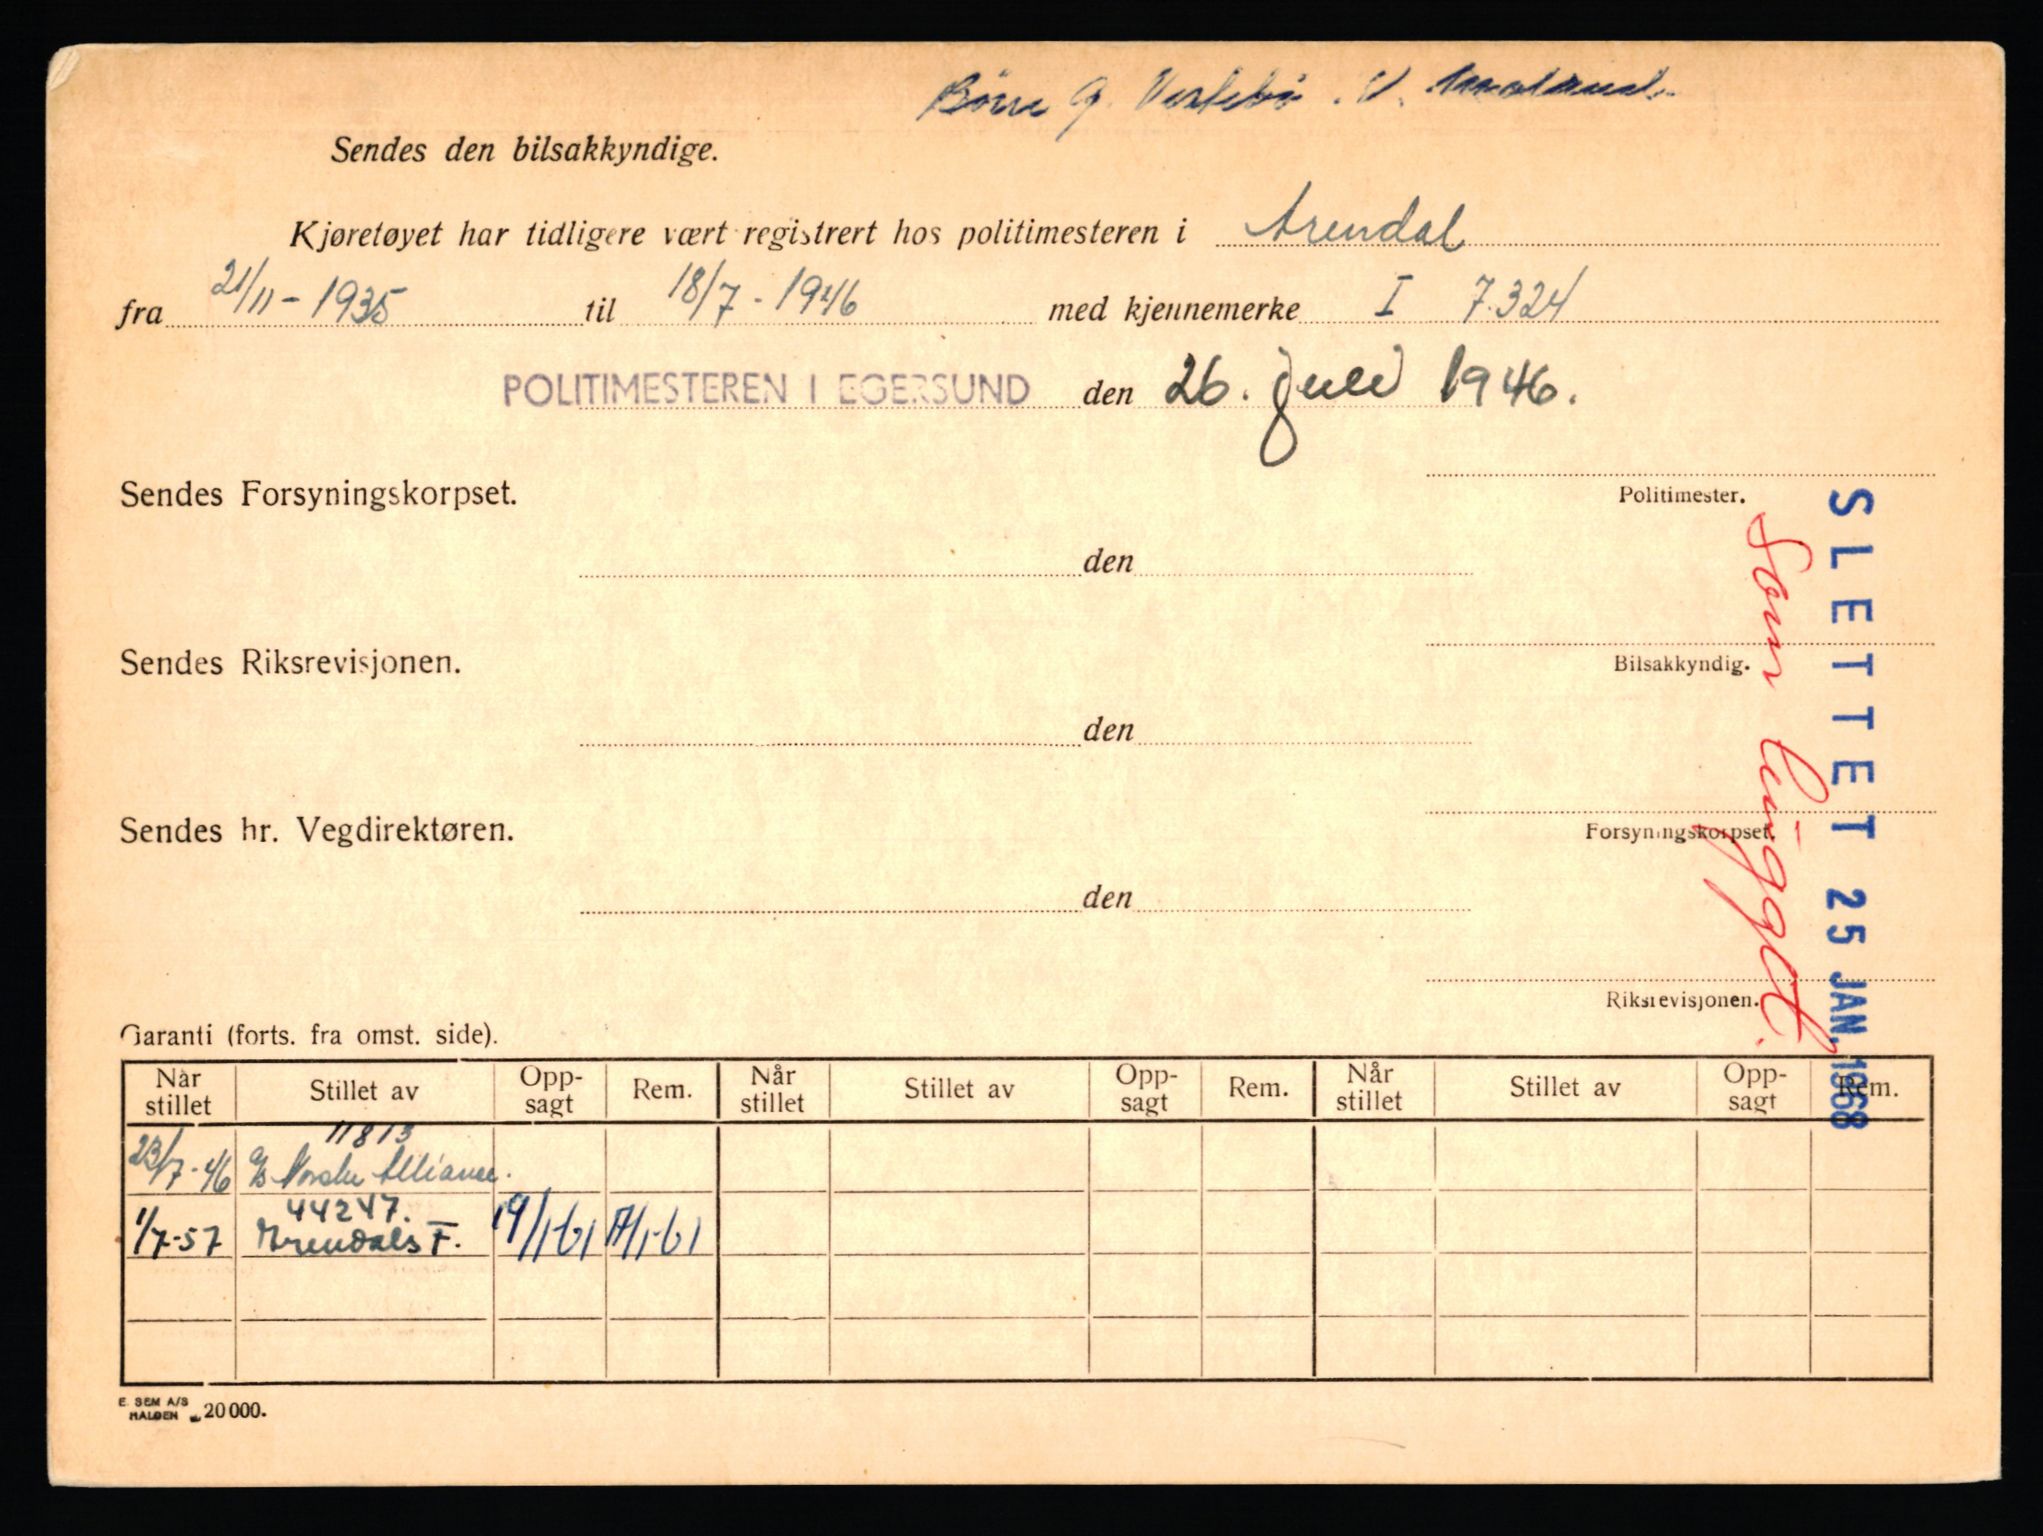 Børre G. Vestebø. V. Moland.
Sendes den bilsakkyndige.
Kjøretøyet har tidligere vært registrert hos politimesteren i Arendal
fra 21/11-1935 til 18/7-1946 med kjennemerke I 7.324
POLITIMESTEREN I EGERSUND den 26. juli 1946.
Sendes Forsyningskorpset.
Politimester.
den
Sendes Riksrevisjonen.
Bilsakkyndig.
den
Sendes hr. Vegdirektøren.
Forsyningskorpset.
den
Riksrevisjonen.
SLETTET 25 JAN. 1968
Som
Garanti (forts. fra omst. side).
Når stillet Stillet av Opp-sagt Rem. Når stillet Stillet av Opp-sagt Rem. Når stillet Stillet av Opp-sagt Rem.
11813
23/7-46 Norske Alliance.
44247.
1/7-57 Arendals F. 19/1-61 19/1-61
E. SEM A/S
HALDEN 20000.